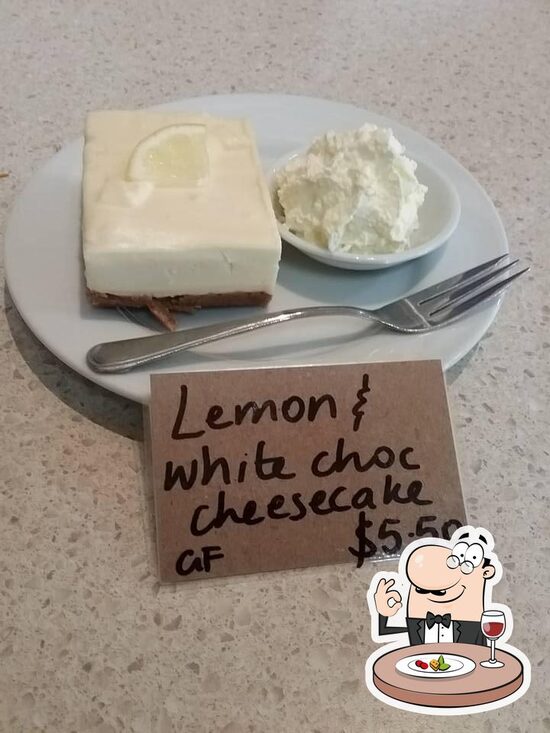 Lemon &
white choc
cheesecake
GF $5.50